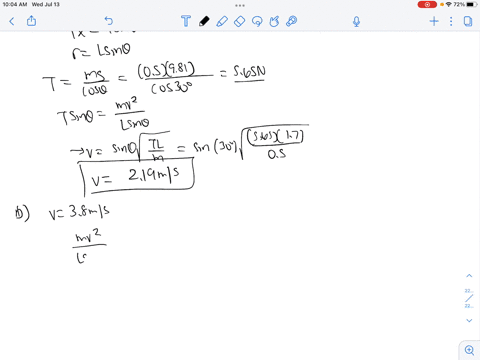 10:04 AM Wed Jul 13
72%
r = Lsinθ
T = mg/cosθ = (0.5)(9.81)/cos30° = 5.65N
Tsinθ = mv²/Lsinθ
→ v = sinθ √(TL/m) = sin(30°) √((5.65)(1.7)/0.5)
v = 2.19 m/s
b) v = 3.8 m/s
mv²